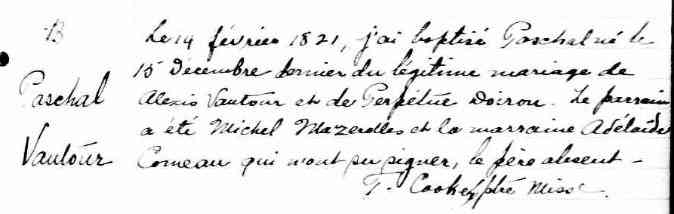 B
Paschal
Vautour
Le 14 février 1821, j'ai baptisé Paschal né le
15 Décembre dernier du légitime mariage de
Alexis Vautour et de Perpétue Doiron. Le parrain
a été Michel Mazerolles et la marraine Adélaïde
Comeau qui n'ont pu signer, le père absent -
T. Cooke, ptre Miss.